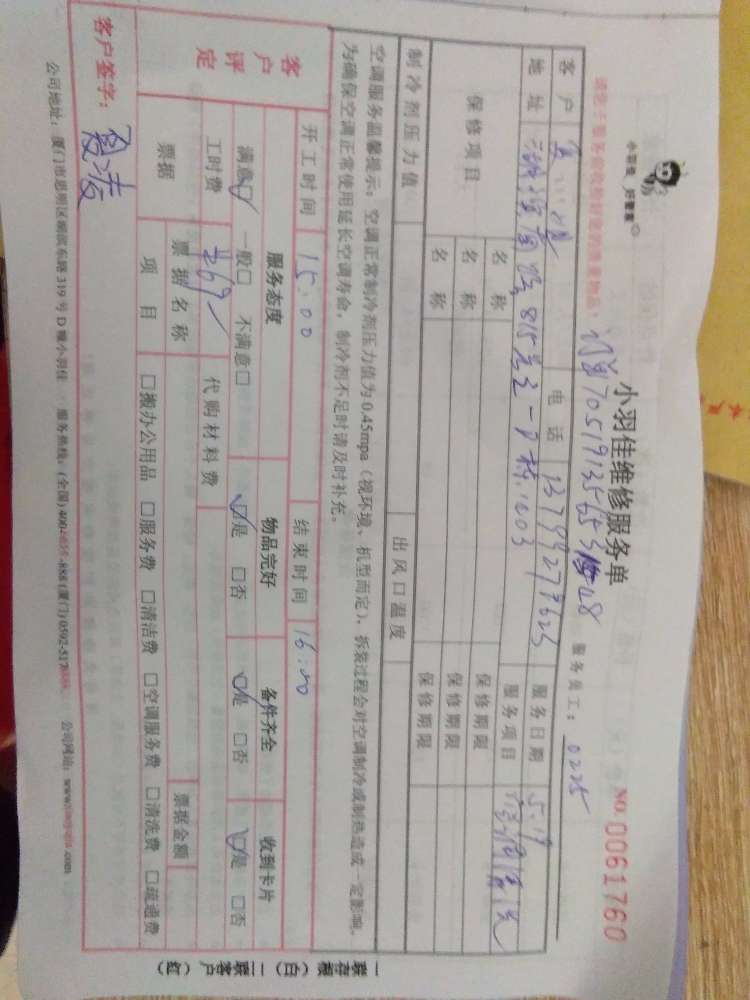 小羽佳 好管家
小羽佳维修服务单
NO. 0061760
请您于服务前收拾好您的贵重物品!
服务员工: 0225
客户 电话 服务日期 5.19
地址 815号之一 1003 服务项目 空调清洗
保修项目 名称 保修期限
名称 保修期限
名称 保修期限
制冷剂压力值 出风口温度
空调服务温馨提示: 空调正常制冷剂压力值为0.45mpa (视环境、机型而定)、拆装过程会对空调制冷或制热造成一定影响。
为确保空调正常使用延长空调寿命, 制冷剂不足时请及时补充。
开工时间 15:00 结束时间 16:00
客户评定 服务态度 物品完好 备件齐全 收到卡片
满意☑ 一般□ 不满意□ ☑是 □否 ☑是 □否 ☑是 □否
工时费 269 代购材料费
票据 票据名称 票据金额
项目 □搬办公用品 □服务费 □清洁费 □空调服务费 □清洗费 □疏通费
客户签字:
公司地址: 厦门市思明区湖滨东路319号D幢小羽佳 服务热线: (全国) (厦门) 公司网站:
一联存根(白) 二联客户(红)